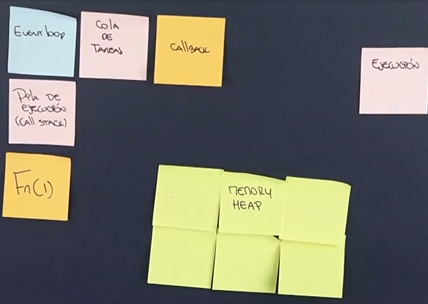 Event loop
COLA
DE
TAREAS
CALLBACK
EJECUCIÓN
Pila DE
EJECUCIÓN
(CALL STACK)
Fn(1)
MEMORY
HEAP